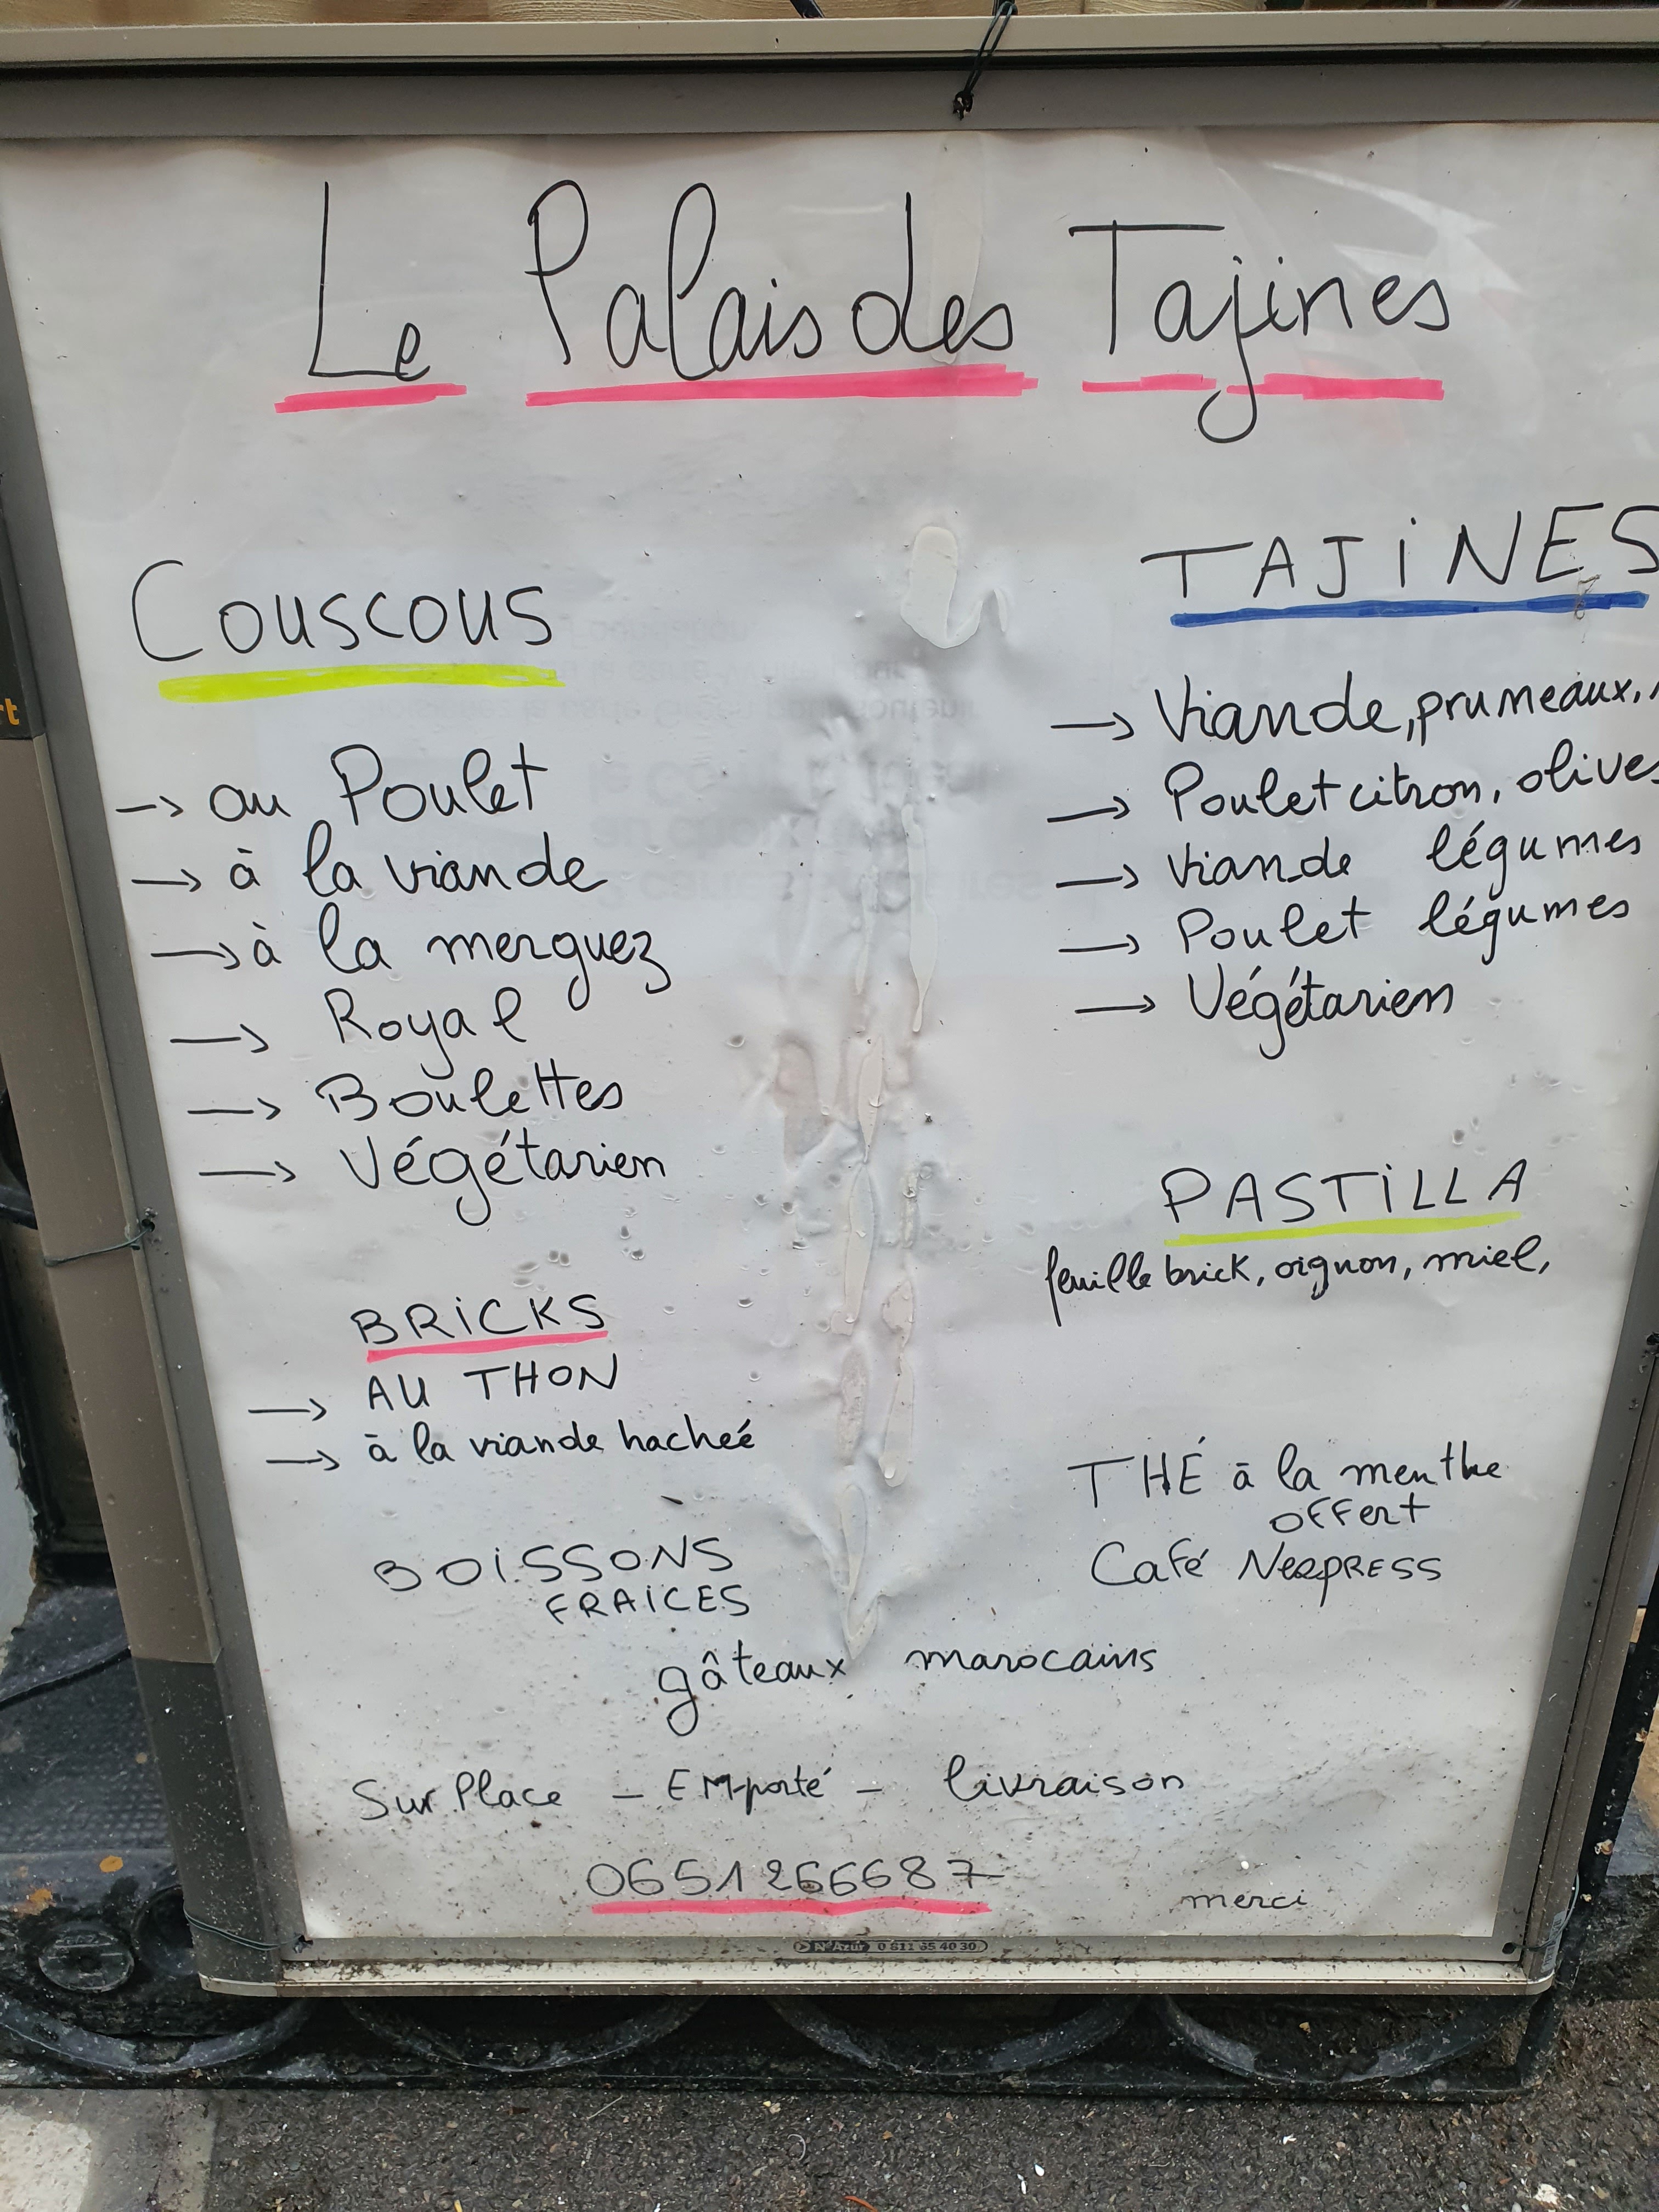 Le Palais des Tajines
Couscous
→ au Poulet
→ à la viande
→ à la merguez
→ Royal
→ Boulettes
→ Végétarien
BRICKS
→ AU THON
→ à la viande hacheé
BOISSONS
FRAICES
TAJINES
→ Viande, pruneaux,
→ Poulet citron, olives
→ viande légumes
→ Poulet légumes
→ Végétarien
PASTILLA
feuille brick, oignon, miel,
THÉ à la menthe
offert
Café NespRESS
gâteaux marocains
Sur Place - EMporté - livraison
0651266687
merci
0 811 65 40 30
rt